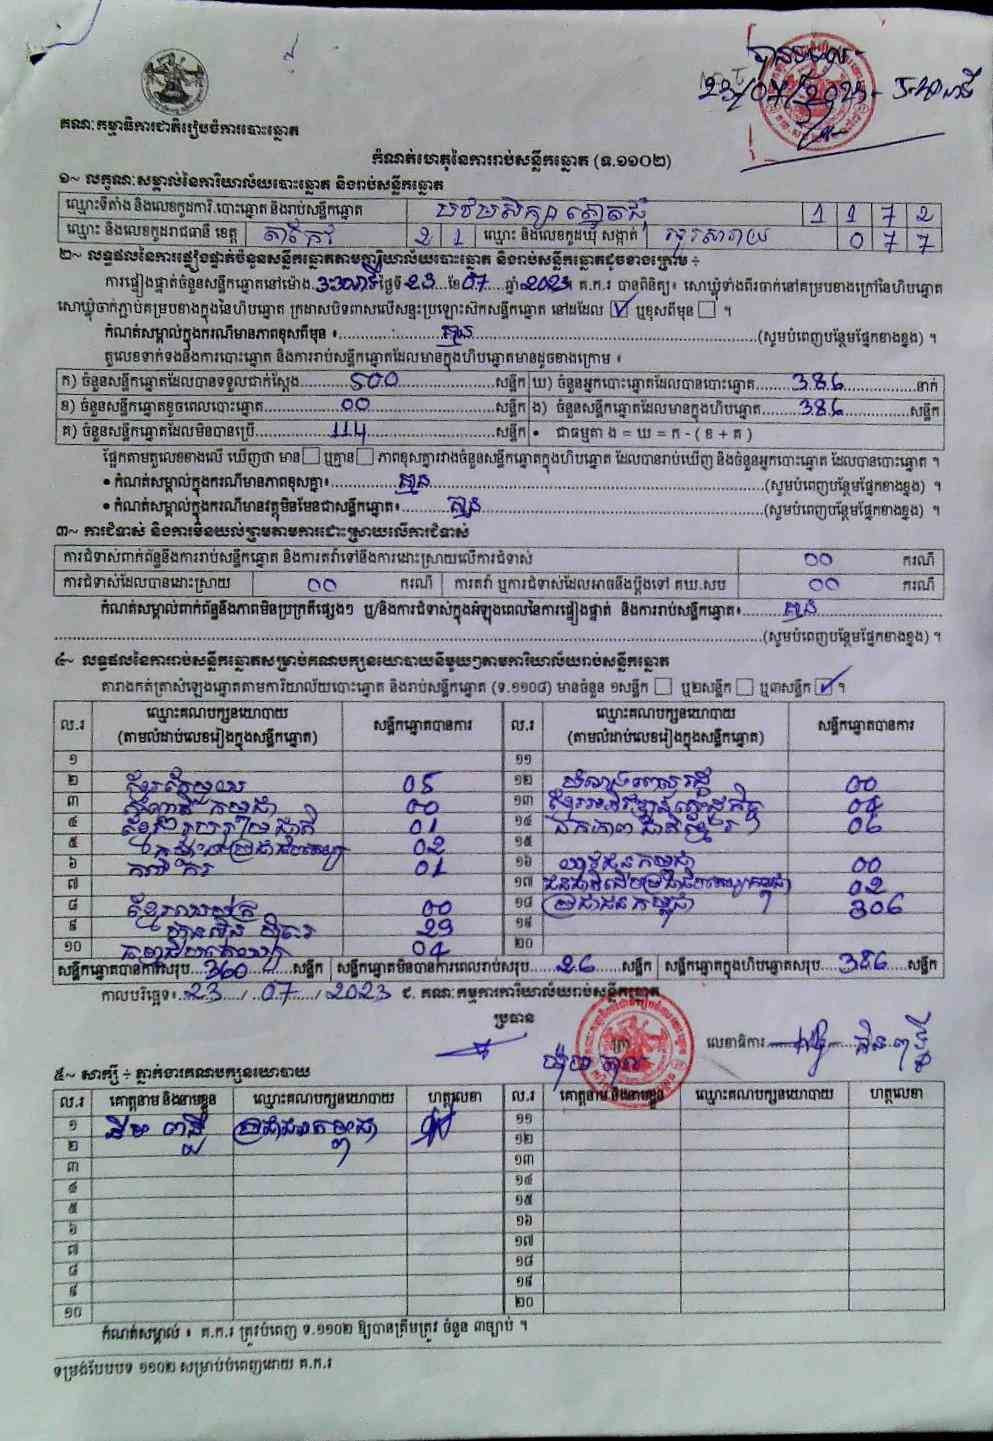 បានទទួល
23/07/2023
គណៈកម្មាធិការជាតិរៀបចំការបោះឆ្នោត
កំណត់ហេតុនៃការរាប់សន្លឹកឆ្នោត (ទ.១១០២)
១~ លក្ខណៈសម្គាល់នៃការិយាល័យបោះឆ្នោត និងរាប់សន្លឹកឆ្នោត
ឈ្មោះទីតាំង និងលេខកូដការិ.បោះឆ្នោត និងរាប់សន្លឹកឆ្នោត 1 1 7 2
ឈ្មោះ និងលេខកូដរាជធានី ខេត្ត តាកែវ 2 1 ឈ្មោះ និងលេខកូដឃុំ សង្កាត់ 0 7 7
២~ លទ្ធផលនៃការផ្ទៀងផ្ទាត់ចំនួនសន្លឹកឆ្នោតតាមការិយាល័យបោះឆ្នោត និងរាប់សន្លឹកឆ្នោតដូចខាងក្រោម ÷
ការផ្ទៀងផ្ទាត់ចំនួនសន្លឹកឆ្នោតនៅម៉ោង ថ្ងៃទី 23 ខែ 07 ឆ្នាំ 2023 គ.ក.រ បានពិនិត្យ៖ សោឃ្មុំទាំងពីរចាក់នៅគម្របខាងក្រៅនៃហិបឆ្នោត
សោឃ្មុំចាក់ភ្ជាប់គម្របខាងក្នុងនៃហិបឆ្នោត ក្រដាសបិទពាសលើសន្ទះប្រឡោះស៊កសន្លឹកឆ្នោត នៅដដែល ☑ ឬខុសពីមុន ☐ ។
កំណត់សម្គាល់ក្នុងករណីមានភាពខុសពីមុន ៖ គ្មាន (សូមបំពេញបន្ថែមផ្នែកខាងខ្នង) ។
តួលេខទាក់ទងនឹងការបោះឆ្នោត និងការរាប់សន្លឹកឆ្នោតដែលមានក្នុងហិបឆ្នោតមានដូចខាងក្រោម ៖
ក) ចំនួនសន្លឹកឆ្នោតដែលបានទទួលជាក់ស្តែង 500 សន្លឹក ឃ) ចំនួនអ្នកបោះឆ្នោតដែលបានបោះឆ្នោត 386 នាក់
ខ) ចំនួនសន្លឹកឆ្នោតខូចពេលបោះឆ្នោត 00 សន្លឹក ង) ចំនួនសន្លឹកឆ្នោតដែលមានក្នុងហិបឆ្នោត 386 សន្លឹក
គ) ចំនួនសន្លឹកឆ្នោតដែលមិនបានប្រើ 114 សន្លឹក • ជាធម្មតា ង = ឃ = ក - ( ខ + គ )
ផ្អែកតាមតួលេខខាងលើ ឃើញថា មាន ☐ ឬគ្មាន ☐ ភាពខុសគ្នារវាងចំនួនសន្លឹកឆ្នោតក្នុងហិបឆ្នោត ដែលបានរាប់ឃើញ និងចំនួនអ្នកបោះឆ្នោត ដែលបានបោះឆ្នោត ។
• កំណត់សម្គាល់ក្នុងករណីមានភាពខុសគ្នា៖ គ្មាន (សូមបំពេញបន្ថែមផ្នែកខាងខ្នង) ។
• កំណត់សម្គាល់ក្នុងករណីមានវត្ថុមិនមែនជាសន្លឹកឆ្នោត៖ គ្មាន (សូមបំពេញបន្ថែមផ្នែកខាងខ្នង) ។
៣~ ការជំទាស់ និងការមិនយល់ព្រមតាមការដោះស្រាយលើការជំទាស់
ការជំទាស់ពាក់ព័ន្ធនឹងការរាប់សន្លឹកឆ្នោត និងការតវ៉ាទៅនឹងការដោះស្រាយលើការជំទាស់ 00 ករណី
ការជំទាស់ដែលបានដោះស្រាយ 00 ករណី ការតវ៉ា ឬការជំទាស់ដែលអាចនឹងប្តឹងទៅ គឃ.សប 00 ករណី
កំណត់សម្គាល់ពាក់ព័ន្ធនឹងភាពមិនប្រក្រតីផ្សេងៗ ឬ/និងការជំទាស់ក្នុងអំឡុងពេលនៃការផ្ទៀងផ្ទាត់ និងការរាប់សន្លឹកឆ្នោត៖ គ្មាន
(សូមបំពេញបន្ថែមផ្នែកខាងខ្នង) ។
៤~ លទ្ធផលនៃការរាប់សន្លឹកឆ្នោតសម្រាប់គណបក្សនយោបាយនីមួយៗតាមការិយាល័យរាប់សន្លឹកឆ្នោត
តារាងកត់ត្រាសំឡេងឆ្នោតតាមការិយាល័យបោះឆ្នោត និងរាប់សន្លឹកឆ្នោត (ទ.១១០៨) មានចំនួន ១សន្លឹក ☐ ឬ២សន្លឹក ☐ ឬ៣សន្លឹក ☑ ។
ល.រ ឈ្មោះគណបក្សនយោបាយ (តាមលំដាប់លេខរៀងក្នុងសន្លឹកឆ្នោត) សន្លឹកឆ្នោតបានការ ល.រ ឈ្មោះគណបក្សនយោបាយ (តាមលំដាប់លេខរៀងក្នុងសន្លឹកឆ្នោត) សន្លឹកឆ្នោតបានការ
១ ១១
២ 05 ១២ 00
៣ 00 ១៣ 04
៤ 01 ១៤ 06
៥ 02 ១៥
៦ 01 ១៦ 00
៧ ១៧ 02
៨ 00 ១៨ ប្រជាជនកម្ពុជា 306
៩ 29 ១៩
១០ 04 ២០
សន្លឹកឆ្នោតបានការសរុប 360 សន្លឹក សន្លឹកឆ្នោតមិនបានការពេលរាប់សរុប 26 សន្លឹក សន្លឹកឆ្នោតក្នុងហិបឆ្នោតសរុប 386 សន្លឹក
កាលបរិច្ឆេទ៖ 23 / 07 / 2023 ៩. គណៈកម្មការការិយាល័យរាប់សន្លឹកឆ្នោត
ប្រធាន
លេខាធិការ
៥~ សាក្សី ÷ ភ្នាក់ងារគណបក្សនយោបាយ
ល.រ គោត្តនាម និងនាមខ្លួន ឈ្មោះគណបក្សនយោបាយ ហត្ថលេខា ល.រ គោត្តនាម និងនាមខ្លួន ឈ្មោះគណបក្សនយោបាយ ហត្ថលេខា
១ ប្រជាជនកម្ពុជា ១១
២ ១២
៣ ១៣
៤ ១៤
៥ ១៥
៦ ១៦
៧ ១៧
៨ ១៨
៩ ១៩
១០ ២០
កំណត់សម្គាល់ ៖ គ.ក.រ ត្រូវបំពេញ ទ.១១០២ ឱ្យបានត្រឹមត្រូវ ចំនួន ៣ច្បាប់ ។
ទម្រង់បែបបទ ១១០២ សម្រាប់បំពេញដោយ គ.ក.រ